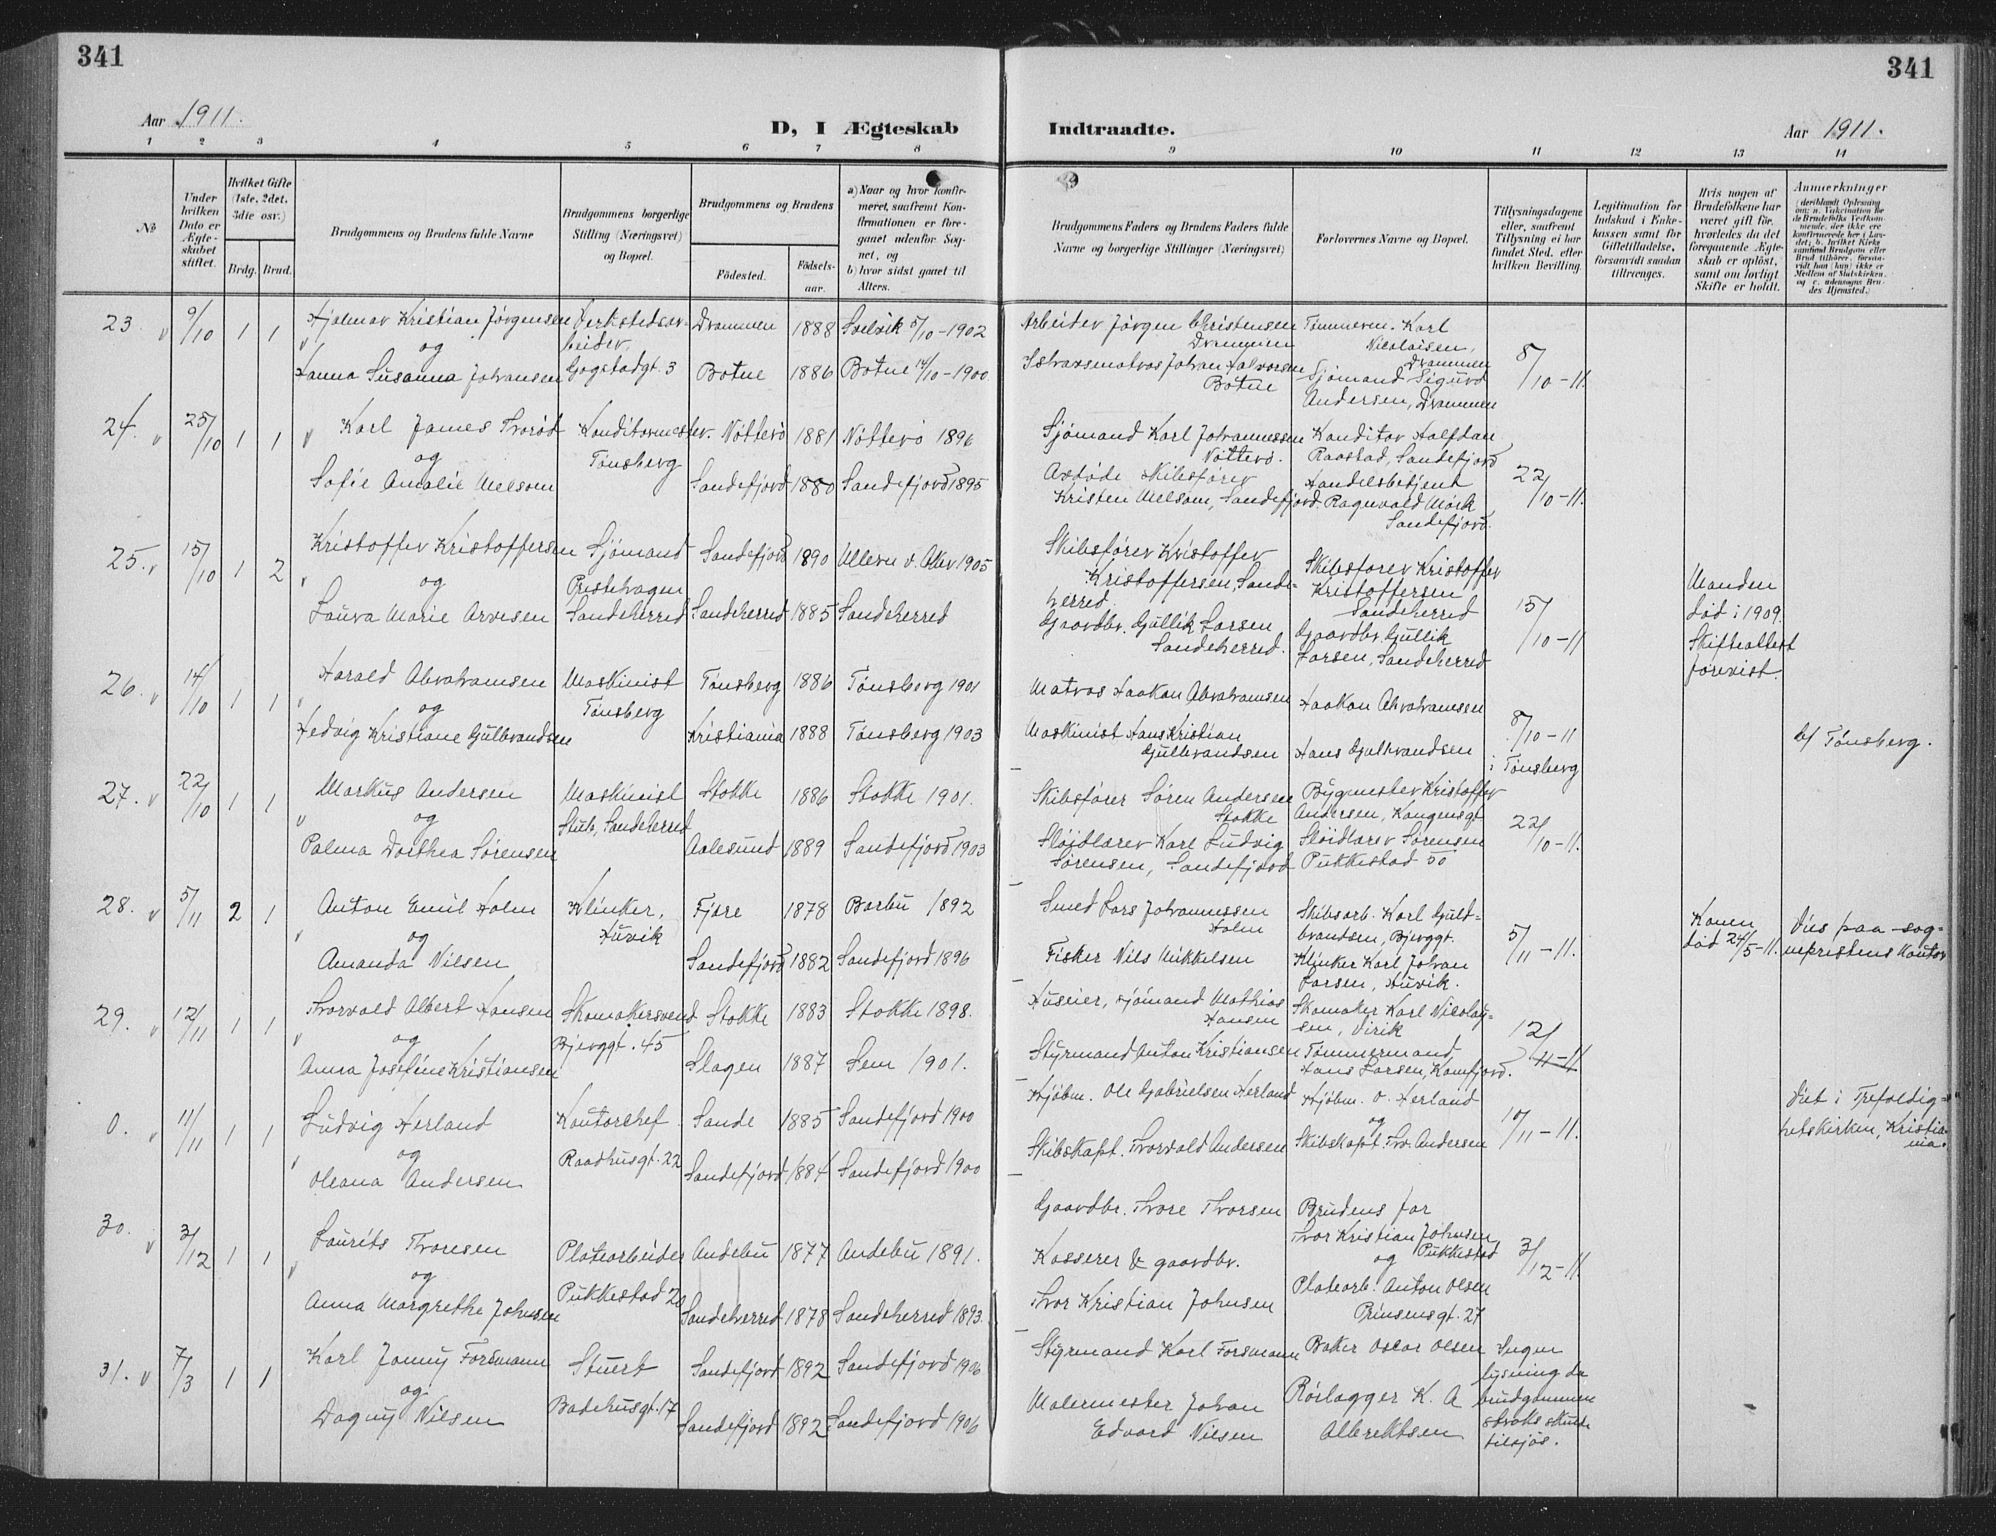 341
341
Aar 1911.
D, I Ægteskab
Indtraadte.
Aar 1911.
1 2 3 4 5 6 7 8 9 10 11 12 13 14
No
Under hvilken Dato er Ægteskabet stiftet.
Hvilket Gifte (1ste, 2det, 3die osv.)
Brdg. Brud.
Brudgommens og Brudens fulde Navne
Brudgommens borgerlige Stilling (Næringsvei) og Bopæl.
Brudgommens og Brudens
Födested.
Födsels-aar.
a) Naar og hvor konfirmeret, saafremt Konfirmationen er foregaaet udenfor Sognet, og
b) hvor sidst gaaet til Alters.
Brudgommens Faders og Brudens Faders fulde Navne og borgerlige Stillinger (Næringsvei)
Forlovernes Navne og Bopæl.
Tillysningsdagene eller, saafremt Tillysning ei har fundet Sted, efter hvilken Bevilling.
Legitimation for Indskud i Enkekassen samt for Giftetilladelse, forsaavidt saadan tiltrænges.
Hvis nogen af Brudefolkene har været gift för, hvorledes da det foregaaende Ægteskab er oplöst, samt om lovligt Skifte er holdt.
Anmerkninger
23. 9/10 1 1 Hjalmar Kristian Jörgensen Verkstedsar- Drammen 1888 Svelvik 5/10-1902 Arbeider Jörgen Christensen Tömmerm. Karl
og beider, Drammen Nicolaisen, Drammen
Hanna Susanna Johansen Gogstadgt. 3 Botne 1886 Botne 14/10-1900 Johan Halvorsen Sjömand Sigurd 8/10-11.
Botne Andersen, Drammen
24. 25/10 1 1 Karl James Thoröd Konditormester. Nötterö 1881 Nötterö 1896 Sjömand Karl Johannessen Konditor Halfdan
og Tönsberg Nötterö. Raastad, Sandefjord
Sofie Amalie Melsom Sandefjord 1880 Sandefjord 1895 Afdöde Skibsförer Handelsbetjent 22/10-11.
Kristen Melsom, Sandefjord. Ragnvald Mörk
Sandefjord.
25. 15/10 1 2 Kristoffer Kristoffersen Sjömand Sandefjord 1890 Ullern v. Aker 1905 Skibsförer Kristoffer Skibsförer Kristoffer
og Prestehagen Kristoffersen, Sande- Kristoffersen Manden
Laura Marie Arvesen Sandeherred Sandeherred 1885 Sandeherred herred. Sandeherred 15/10-11 död i 1909.
Gaardbr. Gullik Larsen Gaardbr. Gullik Skifteattest
Sandeherred. Larsen, Sandeherred forevist.
26. 14/10 1 1 Harald Abrahamsen Maskinist Tönsberg 1886 Tönsberg 1901 Matros Haakon Abrahamsen Haakon Abrahamsen
og Tönsberg
Hedvig Kristiane Gulbrandsen Kristiania 1888 Tönsberg 1903 Maskinist Hans Kristian 8/10-11 b/ Tönsberg.
Gulbrandsen Hans Gulbrandsen i Tönsberg
27. 22/10 1 1 Markus Andersen Maskinist Stokke 1886 Stokke 1901. Skibsförer Sören Andersen Bygmester Kristoffer
og Stub, Sandeherred Stokke Andersen, Kongensgt
Palma Dorthea Sörensen Aalesund 1889 Sandefjord 1903 Slöidlærer Karl Ludvig Slöidlærer Sörensen 22/10-11.
Sörensen, Sandefjord Pukkestad 50
28. 5/11 2 1 Anton Emil Holm Klinker, Fjære 1878 Barbu 1892 Smed Lars Johannessen Skibsarb. Karl Guld- Konen Vies paa sog-
og Huvik Holm brandsen, Bjerggt. 5/11-11. död 24/5-11. neprestens kontor
Amanda Nilsen Sandefjord 1882 Sandefjord 1896 Fisker Nils Mikkelsen Klinker Karl Johan
Larsen, Huvik.
29. 12/11 1 1 Thorvald Albert Hansen Skomakersvend Stokke 1883 Stokke 1898. Huseier, sjömand Mathias Skomaker Karl Nicolay-
og Bjerggt. 45 Hansen sen, Virik 12/11-11
Anna Josefine Kristiansen Slagen 1887 Sem 1901. Styrmand Anton Kristiansen Tömmermand
Hans Larsen, Kamfjord.
0. 11/11 1 1 Ludvig Herland Kontorchef Sande 1885 Sandefjord 1900 Kjöbm. Ole Gabrielsen Herland Kjöbm. O. Herland Viet i Trefoldig-
og Raadhusgt. 22 og 10/11-11. hetskirken, Kristia-
Oleana Andersen Sandefjord 1884 Sandefjord 1900 Skibskapt. Thorvald Andersen Skibskapt. Thv. Andersen nia.
30. 3/12 1 1 Laurits Thoresen Platearbeider Andebu 1877 Andebu 1891. Gaardbr. Thore Thorsen Brudens far
og Pukkestad 20 Kasserer & gaardbr. Thor Kristian Johnsen, Pukkestad 3/12-11
Anna Margrethe Johnsen Sandeherred 1878 Sandeherred 1893. Thor Kristian Johnsen og
Platearb. Anton Olsen
Prinsensgt. 27
31. 7/3 1 1 Karl Jonny Forsmann Stuert Sandefjord 1892 Sandefjord 1906 Styrmand Karl Forsmann Baker Oscar Olsen Ingen
og Badehusgt. 17 lysning da
Dagny Nilsen Sandefjord 1892 Sandefjord 1906 Malermester Johan Rörlægger K. A brudgommen
Edvard Nilsen Albrektsen straks skulde
tilsjös.